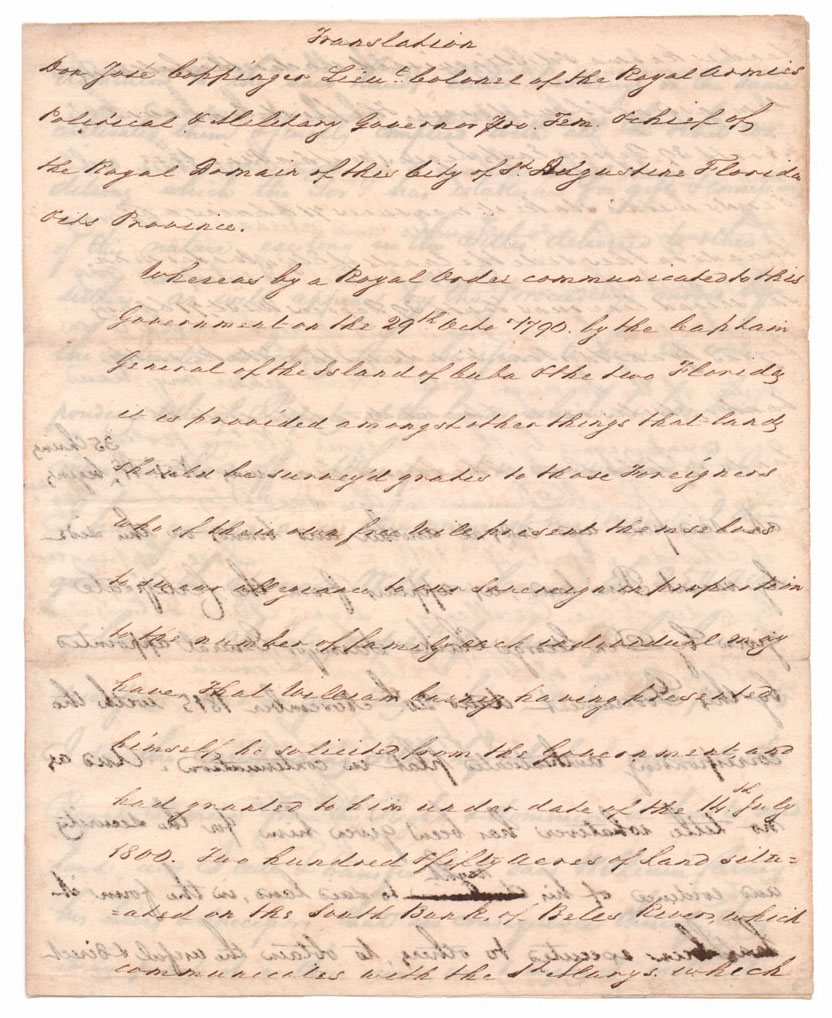 Translation
Don José Coppinger Lieut. Colonel of the Royal Armies
Political & Military Governor Pro. Tem. & chief of
the Royal Domain of this City of St. Augustine Florida
& its Province.
Whereas by a Royal Order communicated to this
Government on the 29th Octo. 1790. by the Captain
General of the Island of Cuba & the two Floridas
it is provided amongst other things that lands
should be survey'd gratis to those Foreigners
who of their own free Will present themselves
to swear allegiance to our Sovereign in proportion
to the number of family each individual may
have. That William having presented
himself, he solicited from the Government and
had granted to him under date of the 14th July
1800. Two hundred & fifty Acres of Land situ=
=ated on the South Bank of Bells River, which
communicates with the St. Marys. which